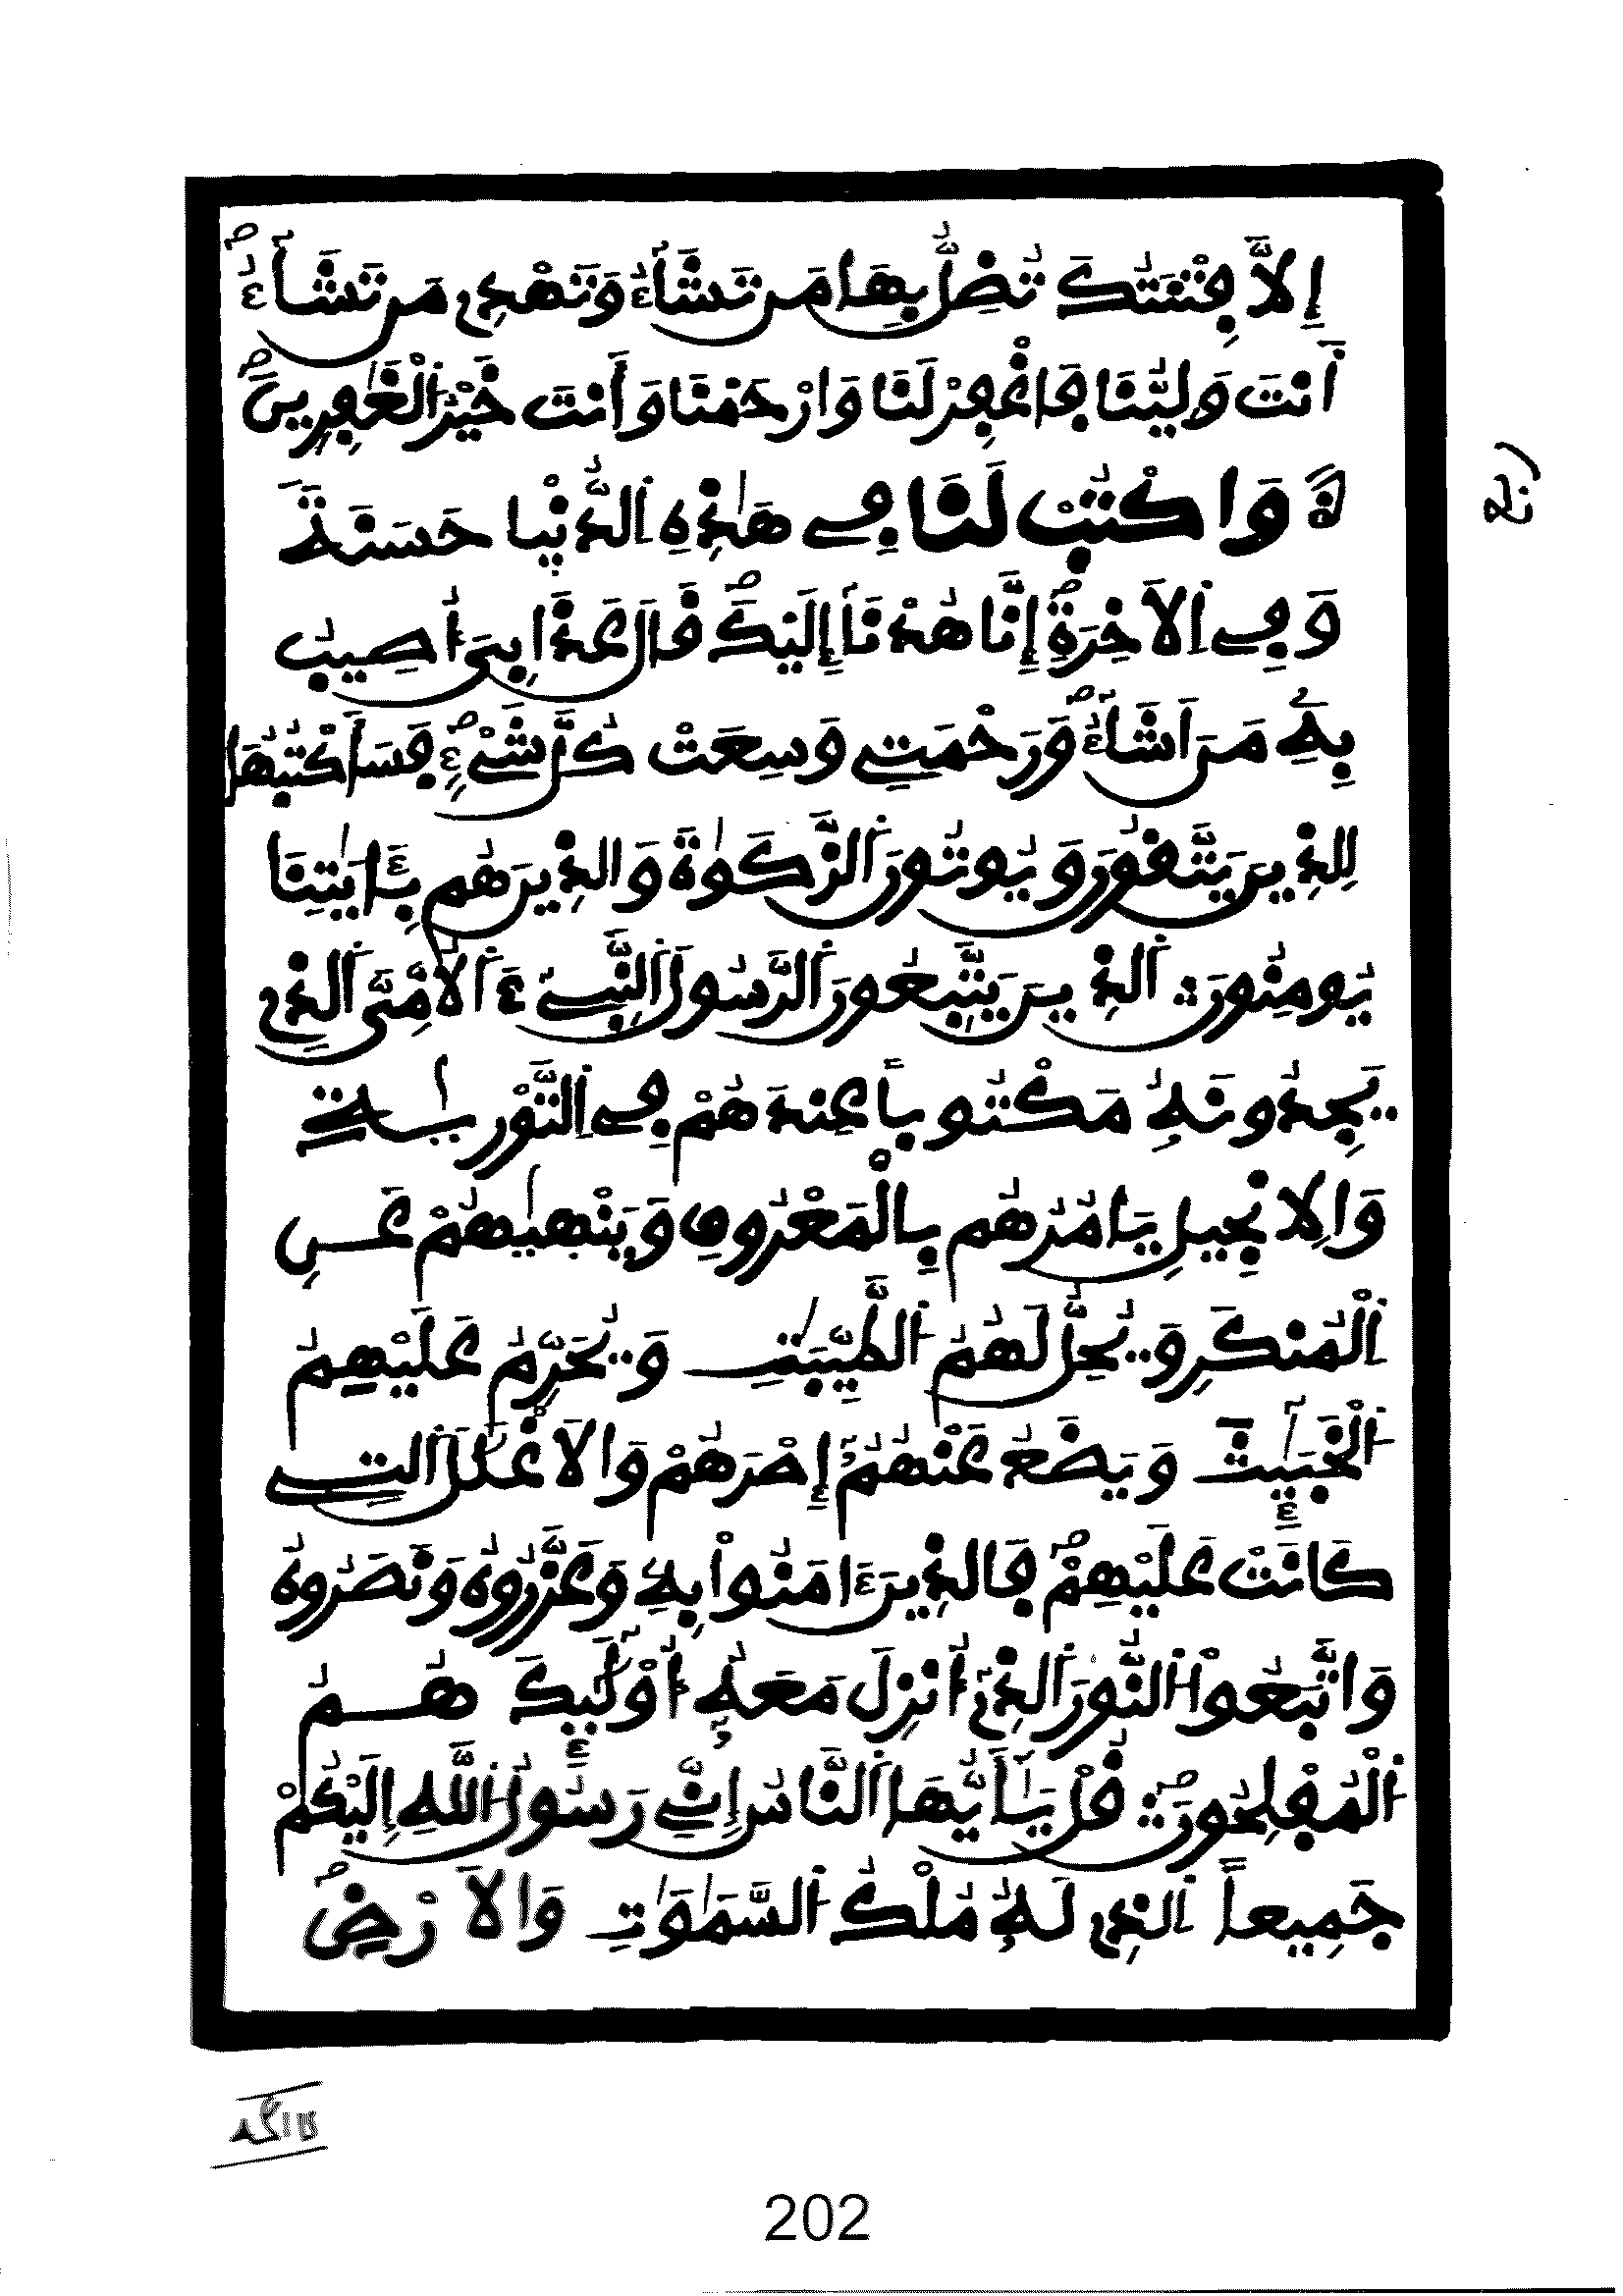 إِلَّا فِتْنَتُكَ تُضِلُّ بِهَا مَن تَشَآءُ وَتَهْدِي مَن تَشَآءُ ۖ
أَنتَ وَلِيُّنَا فَاغْفِرْ لَنَا وَارْحَمْنَا وَأَنتَ خَيْرُ الْغَٰفِرِينَ ۖ
وَاكْتُبْ لَنَا فِي هَٰذِهِ الدُّنْيَا حَسَنَةً
وَفِي الَاخِرَةِ ۖ إِنَّا هُدْنَآ إِلَيْكَ ۖ قَالَ عَذَابِيَ أُصِيبُ
بِهِ مَنَ اَشَآءُ ۖ وَرَحْمَتِي وَسِعَتْ كُلَّ شَيْءٍ ۖ فَسَأَكْتُبُهَا
لِلذِينَ يَتَّقُونَ وَيُوتُونَ الزَّكَوٰةَ وَالذِينَ هُم بِـَٔايَٰتِنَا
يُومِنُونَ الذِينَ يَتَّبِعُونَ الرَّسُولَ النَّبِيَٓءَ الُامِّيَّ الذِي
يَجِدُونَهُ مَكْتُوباً عِندَهُمْ فِي التَّوْرَيٰةِ
وَالِانجِيلِ يَامُرُهُم بِالْمَعْرُوفِ وَيَنْهَيٰهُمْ عَنِ
الْمُنكَرِ وَيُحِلُّ لَهُمُ الطَّيِّبَٰتِ وَيُحَرِّمُ عَلَيْهِمُ
الْخَبَٰٓئِثَ وَيَضَعُ عَنْهُمُۥٓ إِصْرَهُمْ وَالَاغْلَٰلَ التِي
كَانَتْ عَلَيْهِمْ ۖ فَالذِينَ ءَامَنُواْ بِهِ وَعَزَّرُوهُ وَنَصَرُوهُ
وَاتَّبَعُواْ النُّورَ الذِيٓ أُنزِلَ مَعَهُۥٓ أُوْلَٰٓئِكَ هُمُ
الْمُفْلِحُونَ قُلْ يَٰٓأَيُّهَا النَّاسُ إِنِّي رَسُولُ اللَّهِ إِلَيْكُمْ
جَمِيعاً الذِي لَهُ مُلْكُ السَّمَٰوَٰتِ وَالَارْضِ ۖ
ربع
202